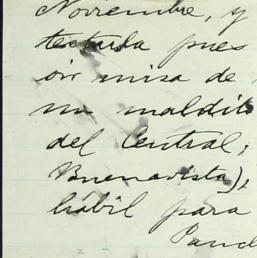 Noviembre, y
testada pues
oir misa de
un maldit
del Central,
Buenavista),
hábil para
Panc